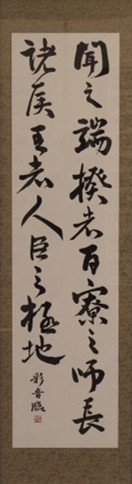 聞之端揆者百寮之師長
諸侯王者人臣之極地
彩音臨